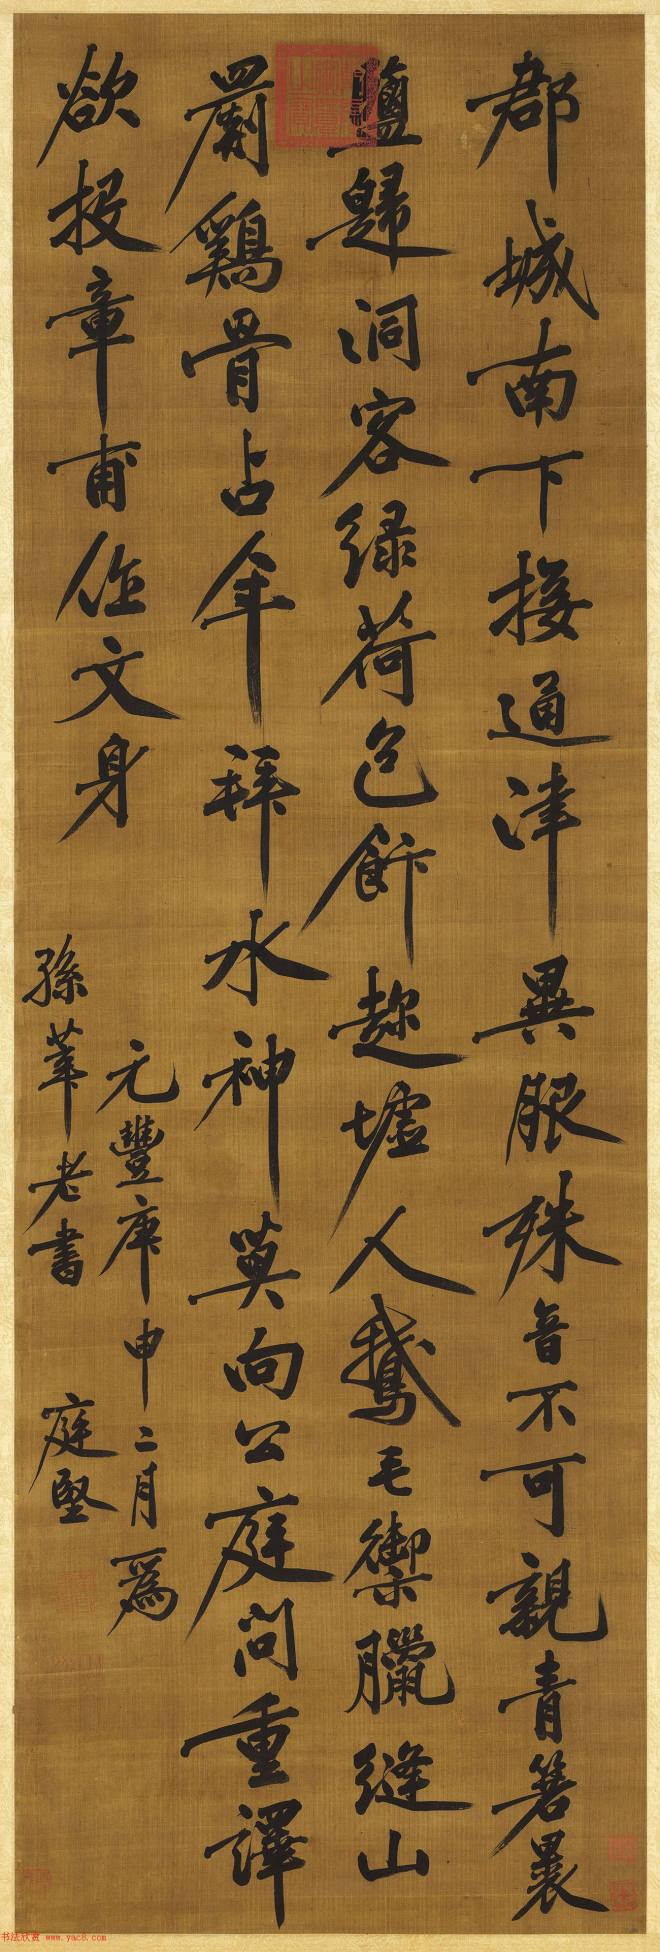 郡城南下接通津異服殊音不可親青箬裹
鹽歸洞客緑荷包飰趂墟人鵝毛禦臘縫山
罽鷄骨占年拜水神莫向公庭問重譯
欲投章甫作文身
元豐庚申二月為
孫莘老書 庭堅
书法欣赏 www.yac8.com